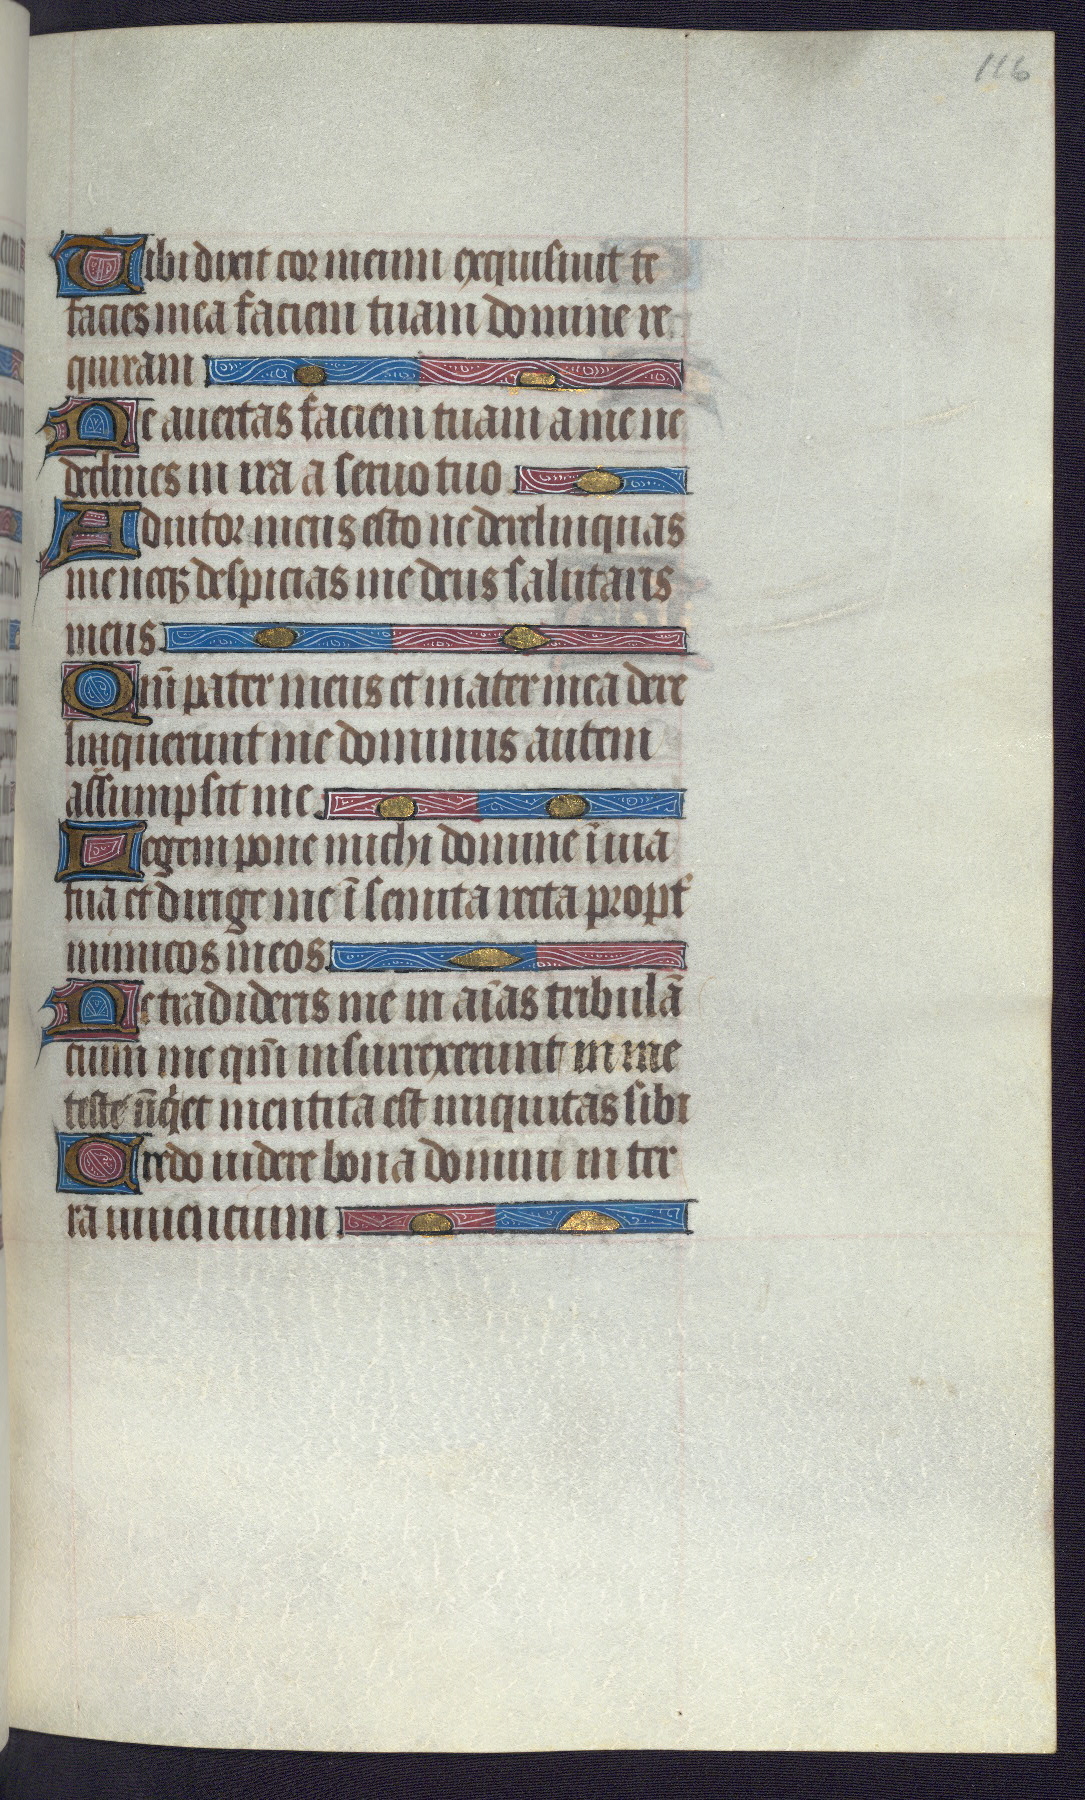 116
Tibi dixit cor meum exquisiuit te
facies mea faciem tuam domine re
quiram
Ne auertas faciem tuam a me ne
declines in ira a seruo tuo
Adiutor meus esto ne derelinquas
me neqꝫ despicias me deus salutaris
meus
Qm̄ pater meus et mater mea dere
linquerunt me dominus autem
assumpsit me
Legem pone michi domine ī uia
tua et dirige me ī semita recta propt᷑
inimicos meos
Ne tradideris me in aīas tribulā
cium me qm̄ insurrexerunt in me
teste et mentita est iniquitas sibi
Credo uidere bona domini in ter
ra uiuencium